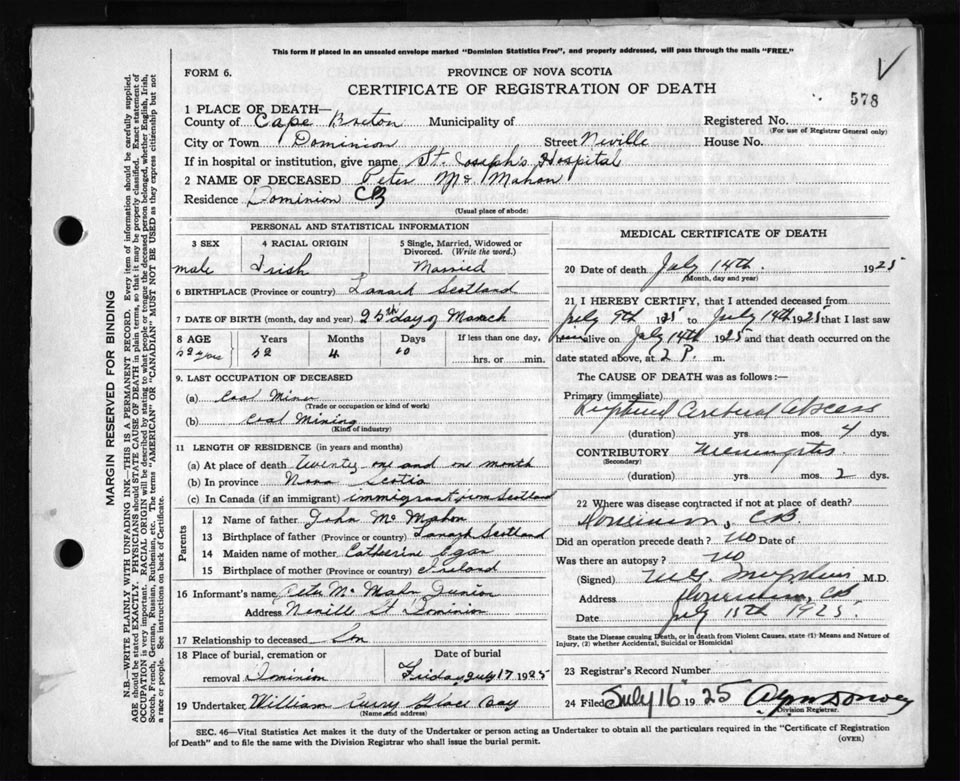 This form if placed in an unsealed envelope marked "Dominion Statistics Free", and properly addressed, will pass through the mails "FREE."
FORM 6.
PROVINCE OF NOVA SCOTIA
CERTIFICATE OF REGISTRATION OF DEATH
578
1 PLACE OF DEATH—
County of Cape Breton Municipality of Registered No.
(For use of Registrar General only)
City or Town Dominion Street Neville House No.
If in hospital or institution, give name St. Joseph's Hospital
2 NAME OF DECEASED Peter Mc Mahon
Residence Dominion CB
(Usual place of abode)
MARGIN RESERVED FOR BINDING
N.B.—WRITE PLAINLY WITH UNFADING INK—THIS IS A PERMANENT RECORD. Every item of information should be carefully supplied.
AGE should be stated EXACTLY. PHYSICIANS should STATE CAUSE OF DEATH in plain terms, so that it may be properly classified. Exact statement of
OCCUPATION is very important. RACIAL ORIGIN will be described by stating to what people or tongue the deceased person belonged, whether English, Irish,
Scotch, French, German, Russian, Ruthenian, etc. The terms "AMERICAN" or "CANADIAN" MUST NOT BE USED as they express citizenship but not
a race or people. See instructions on back of Certificate.
PERSONAL AND STATISTICAL INFORMATION
3 SEX 4 RACIAL ORIGIN 5 Single, Married, Widowed or
Divorced. (Write the word.)
male Irish Married
6 BIRTHPLACE (Province or country) Lanark Scotland
7 DATE OF BIRTH (month, day and year) 25th day of March
8 AGE Years Months Days If less than one day,
52 4 10 hrs. or min.
9. LAST OCCUPATION OF DECEASED
(a) Coal Miner
(Trade or occupation or kind of work)
(b) Coal Mining
(Kind of industry)
11 LENGTH OF RESIDENCE (in years and months)
(a) At place of death Twenty one and one month
(b) In province Nova Scotia
(c) In Canada (if an immigrant) immigrant from Scotland
Parents
12 Name of father John Mc Mahon
13 Birthplace of father (Province or country) Lanark Scotland
14 Maiden name of mother Catherine Egan
15 Birthplace of mother (Province or country) Ireland
16 Informant's name Peter Mc Mahn Junior
Address Neville St Dominion
17 Relationship to deceased Son
18 Place of burial, cremation or Date of burial
removal Dominion Friday July 17 1925
19 Undertaker William Curry Glace Bay
(Name and address)
MEDICAL CERTIFICATE OF DEATH
20 Date of death July 14th. 1925
(Month, day and year)
21 I HEREBY CERTIFY, that I attended deceased from
July 9th 1925 to July 14th 1925 that I last saw
him alive on July 14th 1925 and that death occurred on the
date stated above, at 2 P. m.
The CAUSE OF DEATH was as follows:—
Primary (immediate)
Ruptured Cerebral Abscess
(duration) yrs. mos. 4 dys.
CONTRIBUTORY Meningitis
(Secondary)
(duration) yrs. mos. 2 dys.
22 Where was disease contracted if not at place of death?
Dominion, CB.
Did an operation precede death? no Date of
Was there an autopsy? no
(Signed) M.D.
Address Dominion, CB
Date July 15th 1925.
State the Disease causing Death, or in death from Violent Causes, state (1) Means and Nature of
Injury, (2) whether Accidental, Suicidal or Homicidal
23 Registrar's Record Number
24 Filed July 16 1925
Division Registrar.
SEC. 46—Vital Statistics Act makes it the duty of the Undertaker or person acting as Undertaker to obtain all the particulars required in the "Certificate of Registration
of Death" and to file the same with the Division Registrar who shall issue the burial permit.
(OVER)